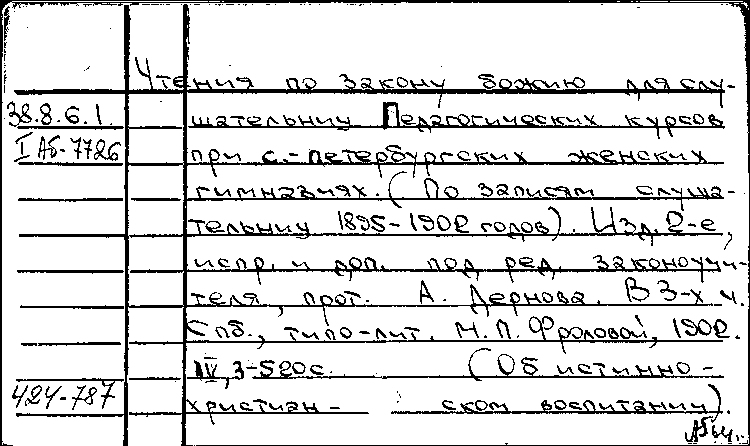 Чтения по закону божию для слу-
38.8.6.1. шательниц Педагогических курсов
I Аб-7726 при С.-петербургских женских
гимназиях. (По записям слуша-
тельниц 1895-1902 годов). Изд. 2-е,
испр. и доп. под ред. законоучи-
теля, прот. А. Дернова. В 3-х ч.
Спб., типо-лит. М.П. Фроловой, 1902.
IV, 3-520 с. (Об истинно-
424-787 христиан- ском воспитании).